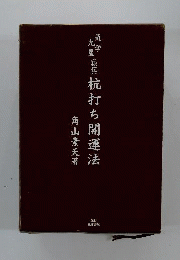 気学
九星秘伝
杭打ち開運法
角山素天著